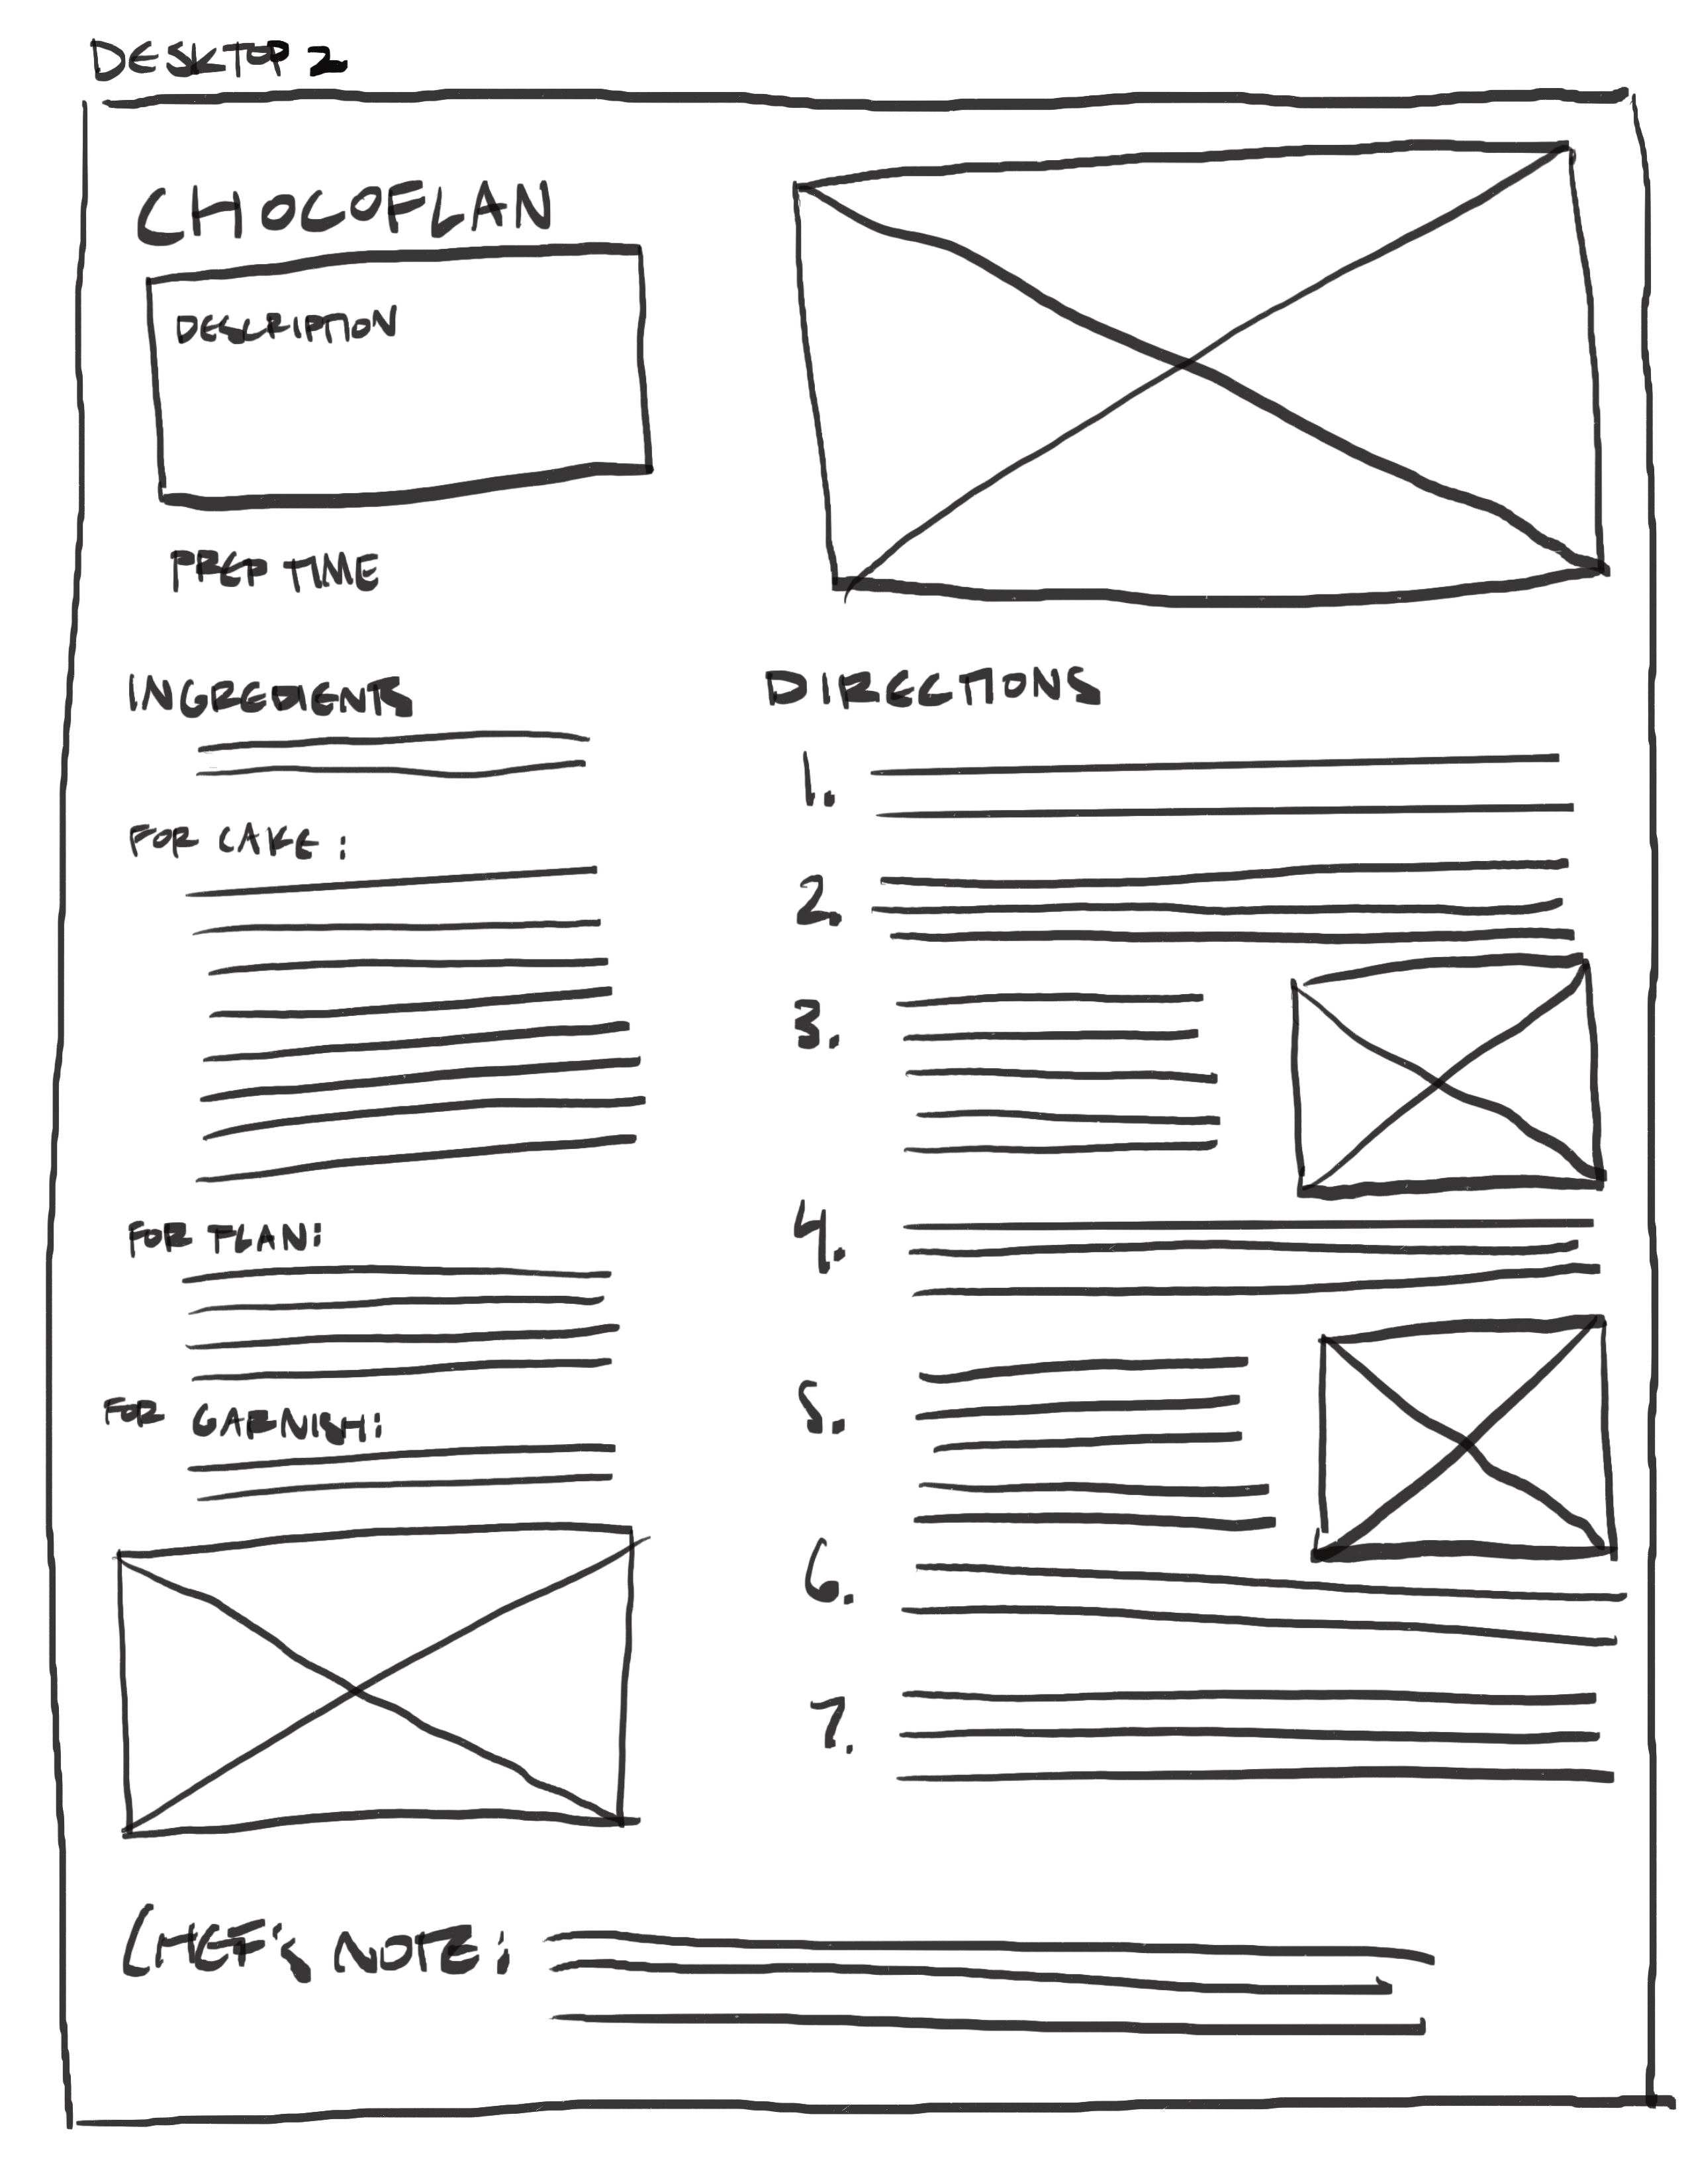 DESKTOP 2
CHOCOFLAN
DESCRIPTION
PREP TIME
INGREDIENTS
FOR CAKE:
FOR FLAN:
FOR GARNISH:
DIRECTIONS
1.
2.
3.
4.
5.
6.
7.
CHEF'S NOTE: